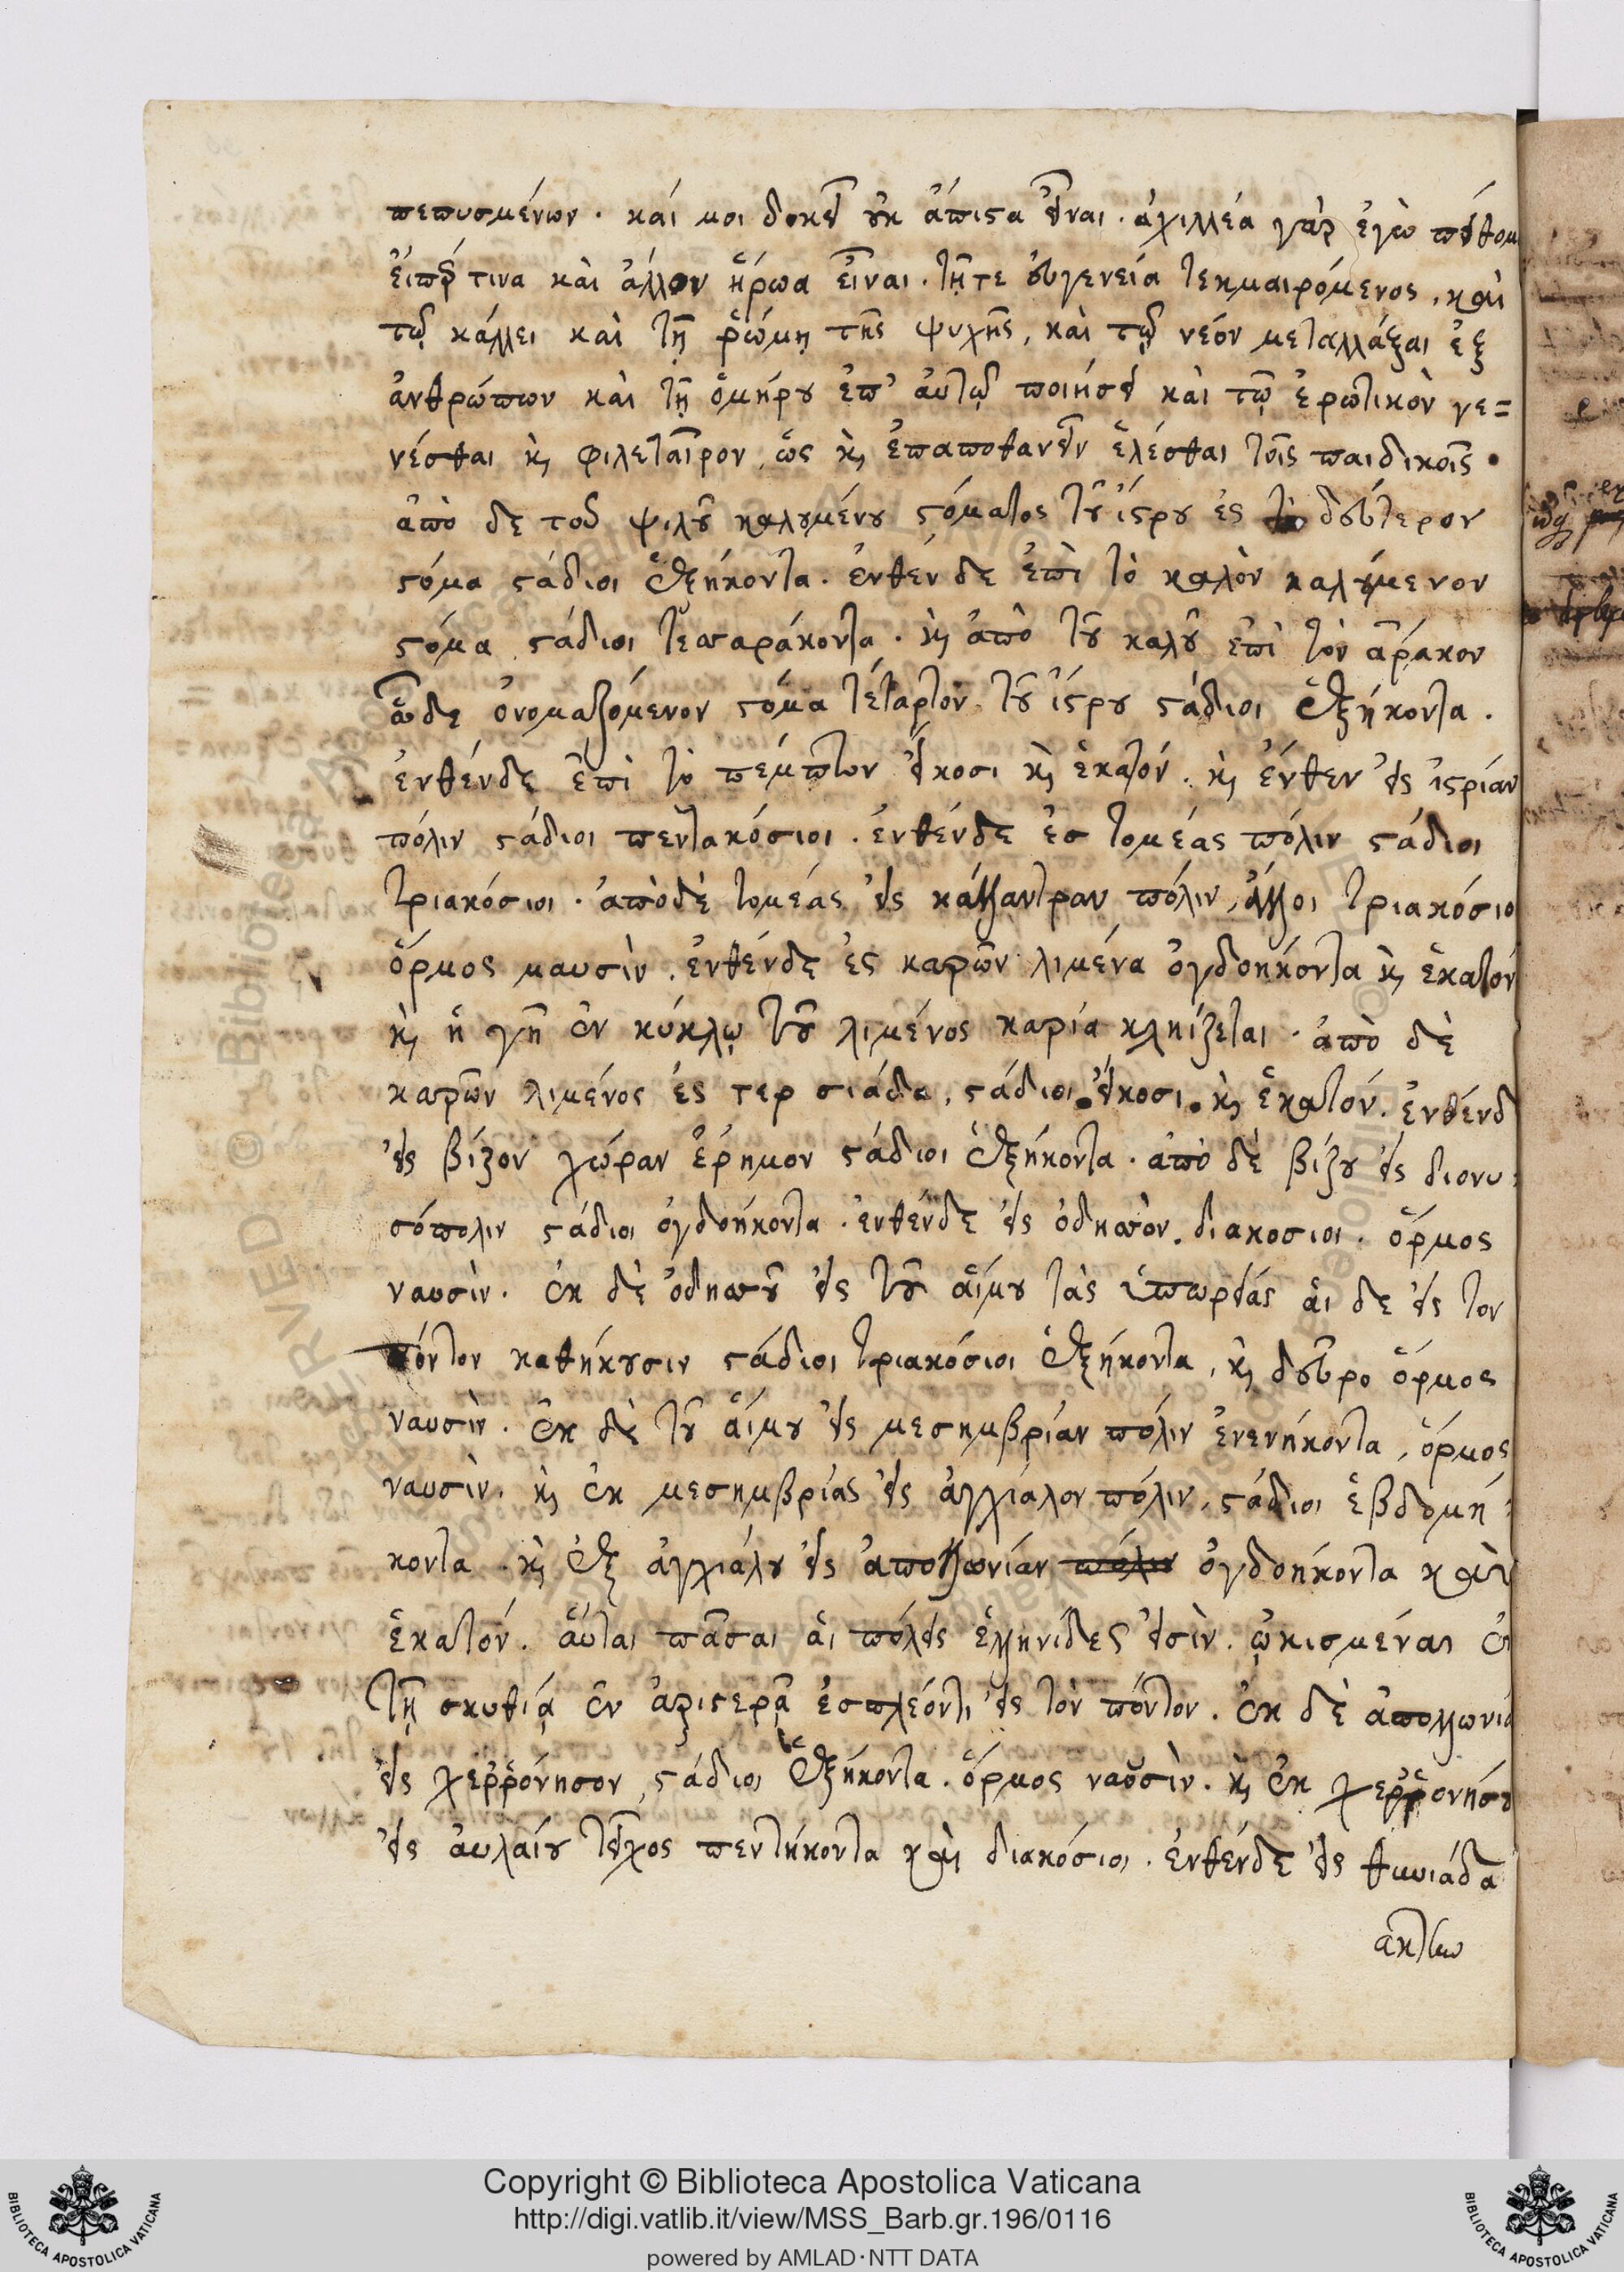 πεπυσμένων . καί μοι δοκεῖ οὐκ ἄπιστα εἶναι . ἀχιλλέα γὰρ ἐγὼ πείθομ
εἴπερ τινα καὶ ἄλλον ἥρωα εἶναι . τῇ τε εὐγενεία τεκμαιρόμενος , καὶ
τῷ κάλλει καὶ τῇ ῥώμῃ τῆς ψυχῆς , καὶ τῷ νέον μεταλλάξαι ἐξ
ἀνθρώπων καὶ τῇ ὁμήρου ἐπ' αὐτῷ ποιήσει καὶ τῷ ἐρωτικὸν γε=
νέσθαι κ φιλεταῖρον , ὡς κ ἐπαποθανεῖν ἑλέσθαι τοῖς παιδικοῖς .
ἀπὸ δε τοῦ ψιλοῦ καλουμένου στόματος τοῦ ἴστρου ἐς το δεύτερον
στόμα στάδιοι ἑξήκοντα . ἐνθέν δε ἐπὶ τὸ καλὸν καλούμενον
στόμα , στάδιοι τεσσαράκοντα . κ ἀπὸ τοῦ καλοῦ ἐπὶ τὸν ἀράκον
ὧδε ὀνομαζόμενον στόμα τέταρτον τοῦ ἴστρου στάδιοι ἑξήκοντα .
ἐνθένδε ἐπὶ τὸ πέμπτον εἴκοσι κ ἑκατόν . κ ἔνθεν εἰς ἰστρίαν
πόλιν στάδιοι πεντακόσιοι . ἐνθένδε ἐσ τομέας πόλιν στάδιοι
τριακόσιοι . ἀπὸ δὲ τομέας εἰς κάλλαντραν πόλιν , ἄλλοι τριακόσιο
ὅρμος μαυσὶν . ἐνθένδε ἐς καρῶν λιμένα ὀγδοηκόντα κ ἑκατόν
κ ἡ γῆ ἐν κύκλῳ τοῦ λιμένος καρία κληίζεται . ἀπὸ δὲ
καρῶν λιμένος ἐς τερ σιάδα , στάδιοι . εἴκοσι . κ ἑκατόν . ἐνθένδ
εἰς βίζον χώραν ἔρημον στάδιοι ἑξήκοντα . ἀπὸ δὲ βίζου εἰς διονυ
σόπολιν στάδιοι ὀγδοήκοντα . ἐνθένδε εἰς ὀδησσὸν . διακοσιοι . ὅρμος
ναυσὶν . ἐκ δὲ ὀδησσοῦ εἰς τοῦ αἵμου τὰς ὑπωρείας αἳ δε εἰς τον
πόντον καθήκουσιν στάδιοι τριακόσιοι ἑξήκοντα , κ δεῦρο ὅρμος
ναυσὶν . ἐκ δὲ τοῦ αἵμου εἰς μεσημβρίαν πόλιν ἐνενήκοντα , ὅρμος
ναυσὶν . κ ἐκ μεσημβρίας εἰς ἀγχίαλον πόλιν , στάδιοι ἑβδομή
κοντα . κ ἐξ ἀγχιάλου εἰς ἀπολλωνίαν πόλιν ὀγδοήκοντα καὶ
ἑκατόν . αὗται πᾶσαι αἱ πόλεις ἑλληνίδες εἰσὶν . ᾠκισμέναι ἐν
τῇ σκυθίᾳ ἐν ἀριστερᾷ ἐσπλέοντι εἰς τὸν πόντον . ἐκ δὲ ἀπολλωνία
εἰς χερρόνησον , στάδιοι ἑξήκοντα . ὅρμος ναυσὶν . κ ἐκ χερρονήσου
εἰς αὐλαίου τεῖχος πεντήκοντα καὶ διακόσιοι . ἐνθένδε εἰς θυνιάδα
ἀκτὴν